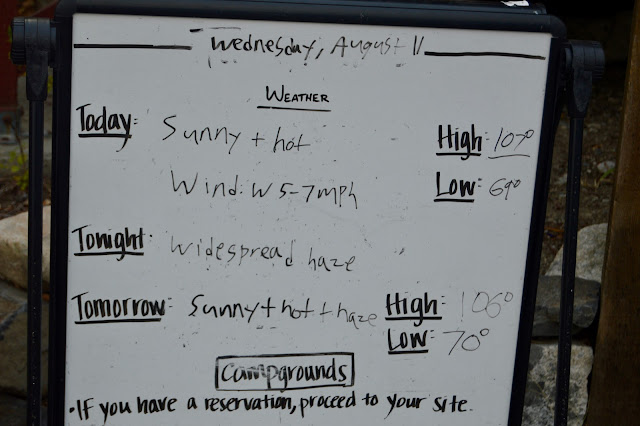 Wednesday, August 11
WEATHER
Today: Sunny + hot High: 107°
Wind: W 5-7mph Low: 69°
Tonight Widespread haze
Tomorrow: Sunny + hot + haze High: 106°
Low: 70°
Campgrounds
• If you have a reservation, proceed to your site.